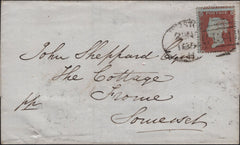 John Sheppard Esq
The Cottage
Frome
pp
Somerset